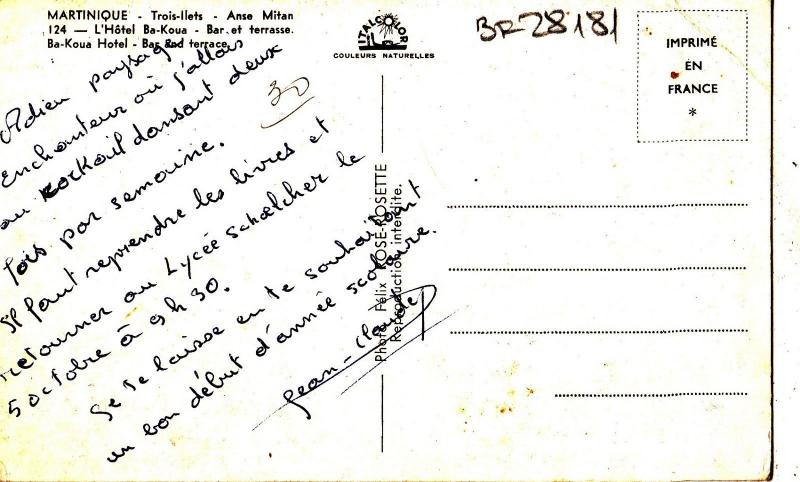 MARTINIQUE - Trois-Ilets - Anse Mitan
124 — L'Hôtel Ba-Koua - Bar et terrasse.
Ba-Koua Hotel - Bar and terrace.
ITALCOLOR
COULEURS NATURELLES
BR28181
IMPRIMÉ
EN
FRANCE
*
30
Adieu paysage
Enchanteur où j'allais
au Cocktail dansant deux
fois par semaine.
Il faut reprendre les livres et
retourner au Lycée Schœlcher le
5 octobre à 9h 30.
Je te laisse en te souhaitant
un bon début d'année scolaire.
Jean-Claude
Photo Félix ROSE-ROSETTE
Reproduction interdite.